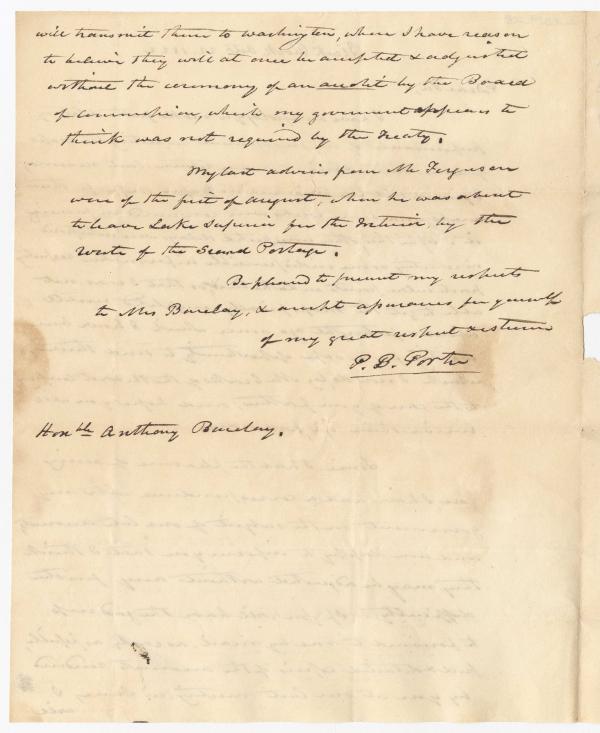 will transmit them to Washington, where I have reason
to believe they will at once be accepted & adjusted
without the ceremony of an audit by the Board
of Commission, which my government appears to
think was not required by the Treaty.
My last advices from Mr Ferguson
were of the first of August, when he was about
to leave Lake Superior for the Interior, by the
route of the Grand Portage.
Be pleased to present my respects
to Mrs Barclay, & accept assurances for yourself
of my great respect & esteem
P. B. Porter
Honble Anthony Barclay.